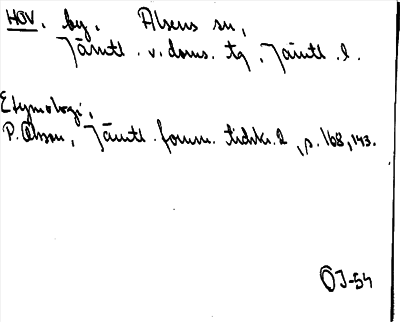 HOV. by. Alsens sn,
Jämtl. v. doms. tg, Jämtl. l.
Etymologi,
P. Olsson, Jämtl. fornm. tidskr. 2, s. 168, 143.
ÖJ-54